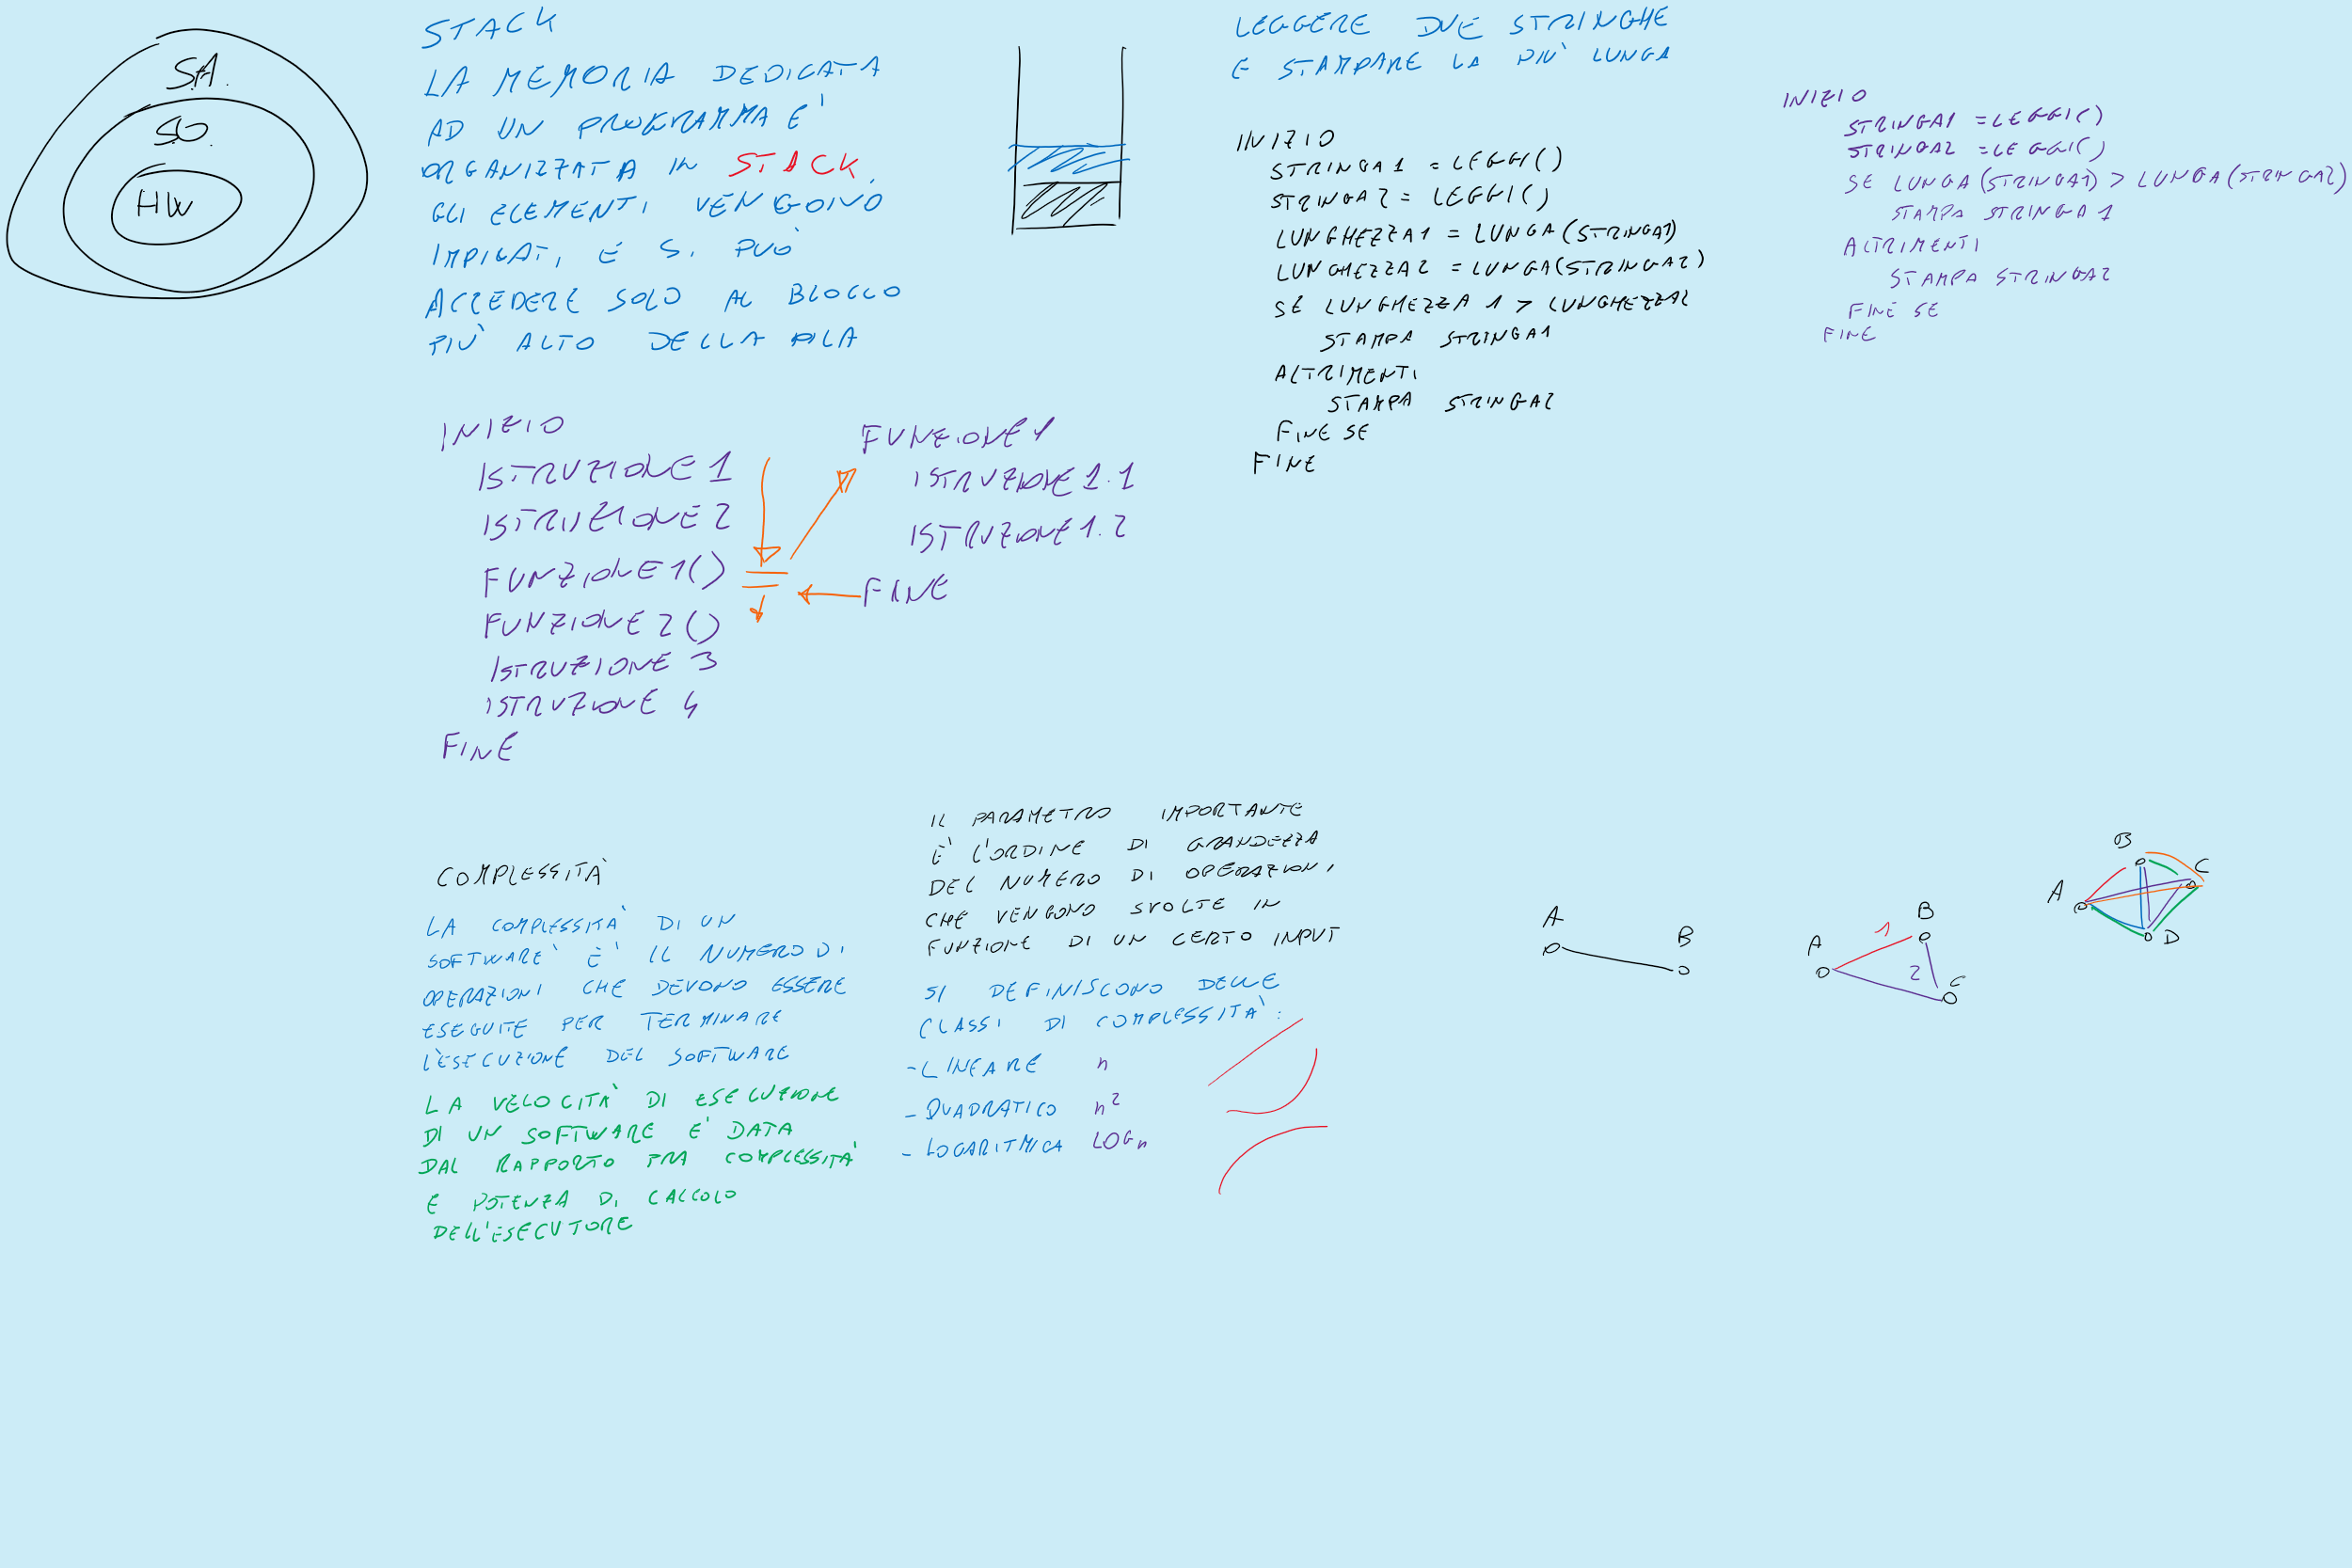 S.A.
S.O.
HW
STACK
LA MEMORIA DEDICATA
AD UN PROGRAMMA E'
ORGANIZZATA IN STACK.
GLI ELEMENTI VENGONO
IMPILATI E SI PUÒ
ACCEDERE SOLO AL BLOCCO
PIÙ ALTO DELLA PILA
INIZIO
ISTRUZIONE 1
ISTRUZIONE 2
FUNZIONE1()
FUNZIONE2()
ISTRUZIONE 3
ISTRUZIONE 4
FINE
FUNZIONE1
ISTRUZIONE 1.1
ISTRUZIONE 1.2
FINE
LEGGERE DUE STRINGHE
E STAMPARE LA PIÙ LUNGA
INIZIO
STRINGA1 = LEGGI()
STRINGA2 = LEGGI()
LUNGHEZZA1 = LUNGA(STRINGA1)
LUNGHEZZA2 = LUNGA(STRINGA2)
SE LUNGHEZZA1 > LUNGHEZZA2
STAMPA STRINGA1
ALTRIMENTI
STAMPA STRINGA2
FINE SE
FINE
INIZIO
STRINGA1 = LEGGI()
STRINGA2 = LEGGI()
SE LUNGA(STRINGA1) > LUNGA(STRINGA2)
STAMPA STRINGA1
ALTRIMENTI
STAMPA STRINGA2
FINE SE
FINE
COMPLESSITÀ
LA COMPLESSITÀ DI UN
SOFTWARE E' IL NUMERO DI
OPERAZIONI CHE DEVONO ESSERE
ESEGUITE PER TERMINARE
L'ESECUZIONE DEL SOFTWARE
LA VELOCITÀ DI ESECUZIONE
DI UN SOFTWARE E' DATA
DAL RAPPORTO TRA COMPLESSITÀ
E POTENZA DI CALCOLO
DELL'ESECUTORE
IL PARAMETRO IMPORTANTE
È L'ORDINE DI GRANDEZZA
DEL NUMERO DI OPERAZIONI
CHE VENGONO SVOLTE IN
FUNZIONE DI UN CERTO INPUT
SI DEFINISCONO DELLE
CLASSI DI COMPLESSITÀ:
- LINEARE n
- QUADRATICO n²
- LOGARITMICA LOG n
A
B
A
B
C
1
2
A
B
C
D